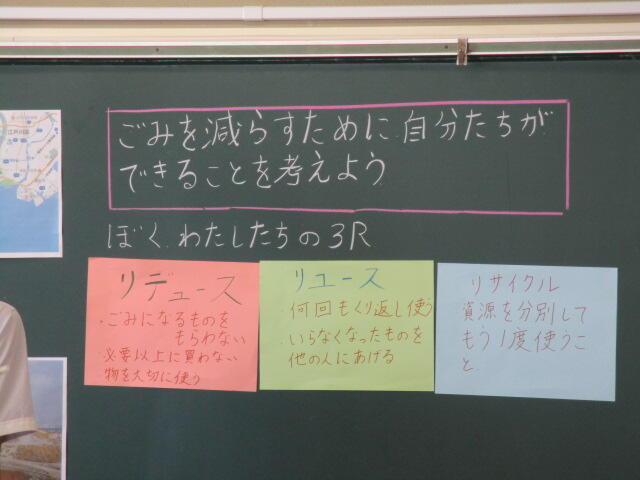 ごみを減らすために自分たちが
できることを考えよう
ぼく.わたしたちの3R
リデュース
・ごみになるものを
もらわない
・必要以上に買わない
・物を大切に使う
リユース
・何回もくり返し使う
・いらなくなったものを
他の人にあげる
リサイクル
資源を分別して
もう1度使うこ
と.